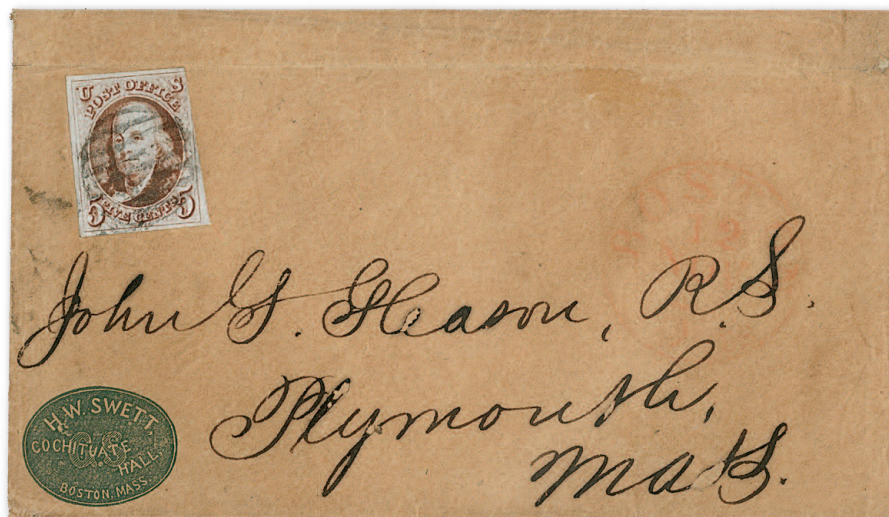 U S
POST OFFICE
5 FIVE CENTS 5
BOST
19
John G. Gleason, R.S.
Plymouth,
Mass.
H.W. SWETT,
COCHITUATE
HALL,
BOSTON, MASS.